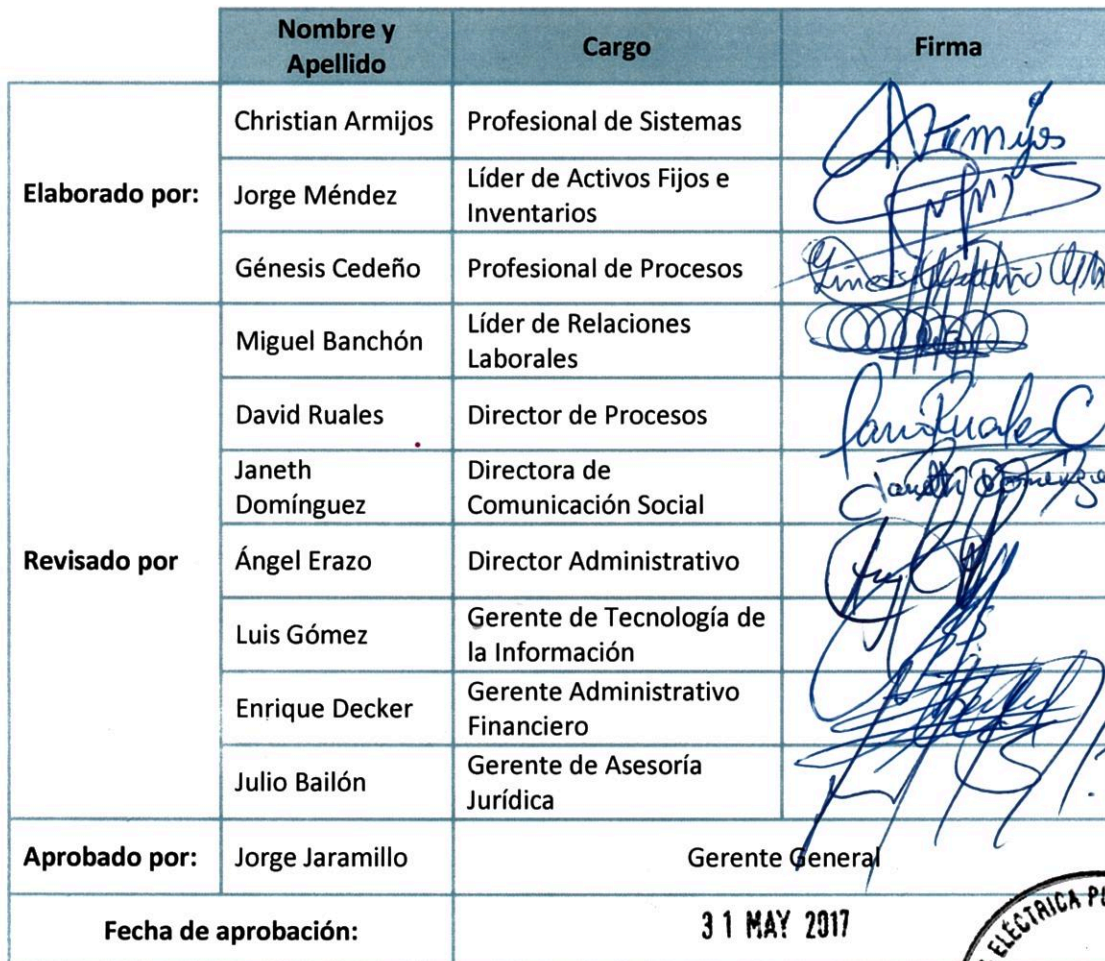 Nombre y
Apellido
Cargo
Firma
Elaborado por:
Christian Armijos
Profesional de Sistemas
Armijos
Jorge Méndez
Líder de Activos Fijos e
Inventarios
Génesis Cedeño
Profesional de Procesos
Revisado por
Miguel Banchón
Líder de Relaciones
Laborales
David Ruales
Director de Procesos
Ruales C
Janeth
Domínguez
Directora de
Comunicación Social
Janeth
Ángel Erazo
Director Administrativo
Luis Gómez
Gerente de Tecnología de
la Información
Enrique Decker
Gerente Administrativo
Financiero
Julio Bailón
Gerente de Asesoría
Jurídica
Aprobado por:
Jorge Jaramillo
Gerente General
Fecha de aprobación:
31 MAY 2017
ELÉCTRICA